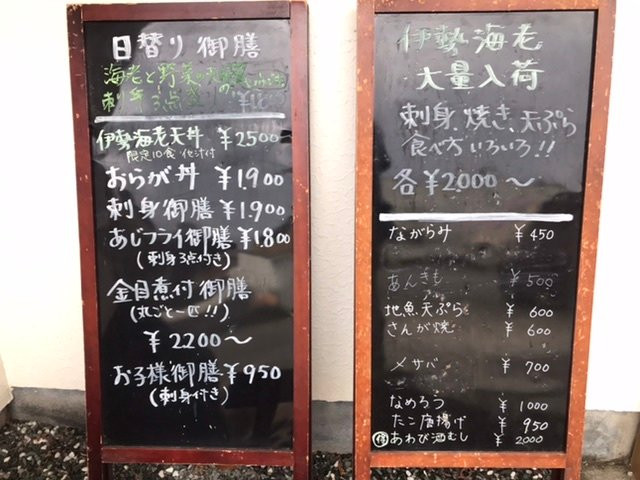 日替り御膳
海老と野菜の天ぷら
刺身3点盛の
伊勢海老天丼 ¥2500
限定10食 他汁付
おらが丼 ¥1.900
刺身御膳 ¥1.900
あじフライ御膳 ¥1.800
(刺身3点付き)
金目煮付御膳
(丸ごと一匹!!)
¥2200〜
お子様御膳 ¥950
(刺身付き)
伊勢海老
大量入荷
刺身 焼き、天ぷら
食べ方いろいろ!!
各¥2000〜
ながらみ ¥450
あんきも ¥500
地魚天ぷら ¥600
さんが焼 ¥600
〆サバ ¥700
なめろう ¥1000
たこ唐揚げ ¥950
あわび酒むし ¥2000